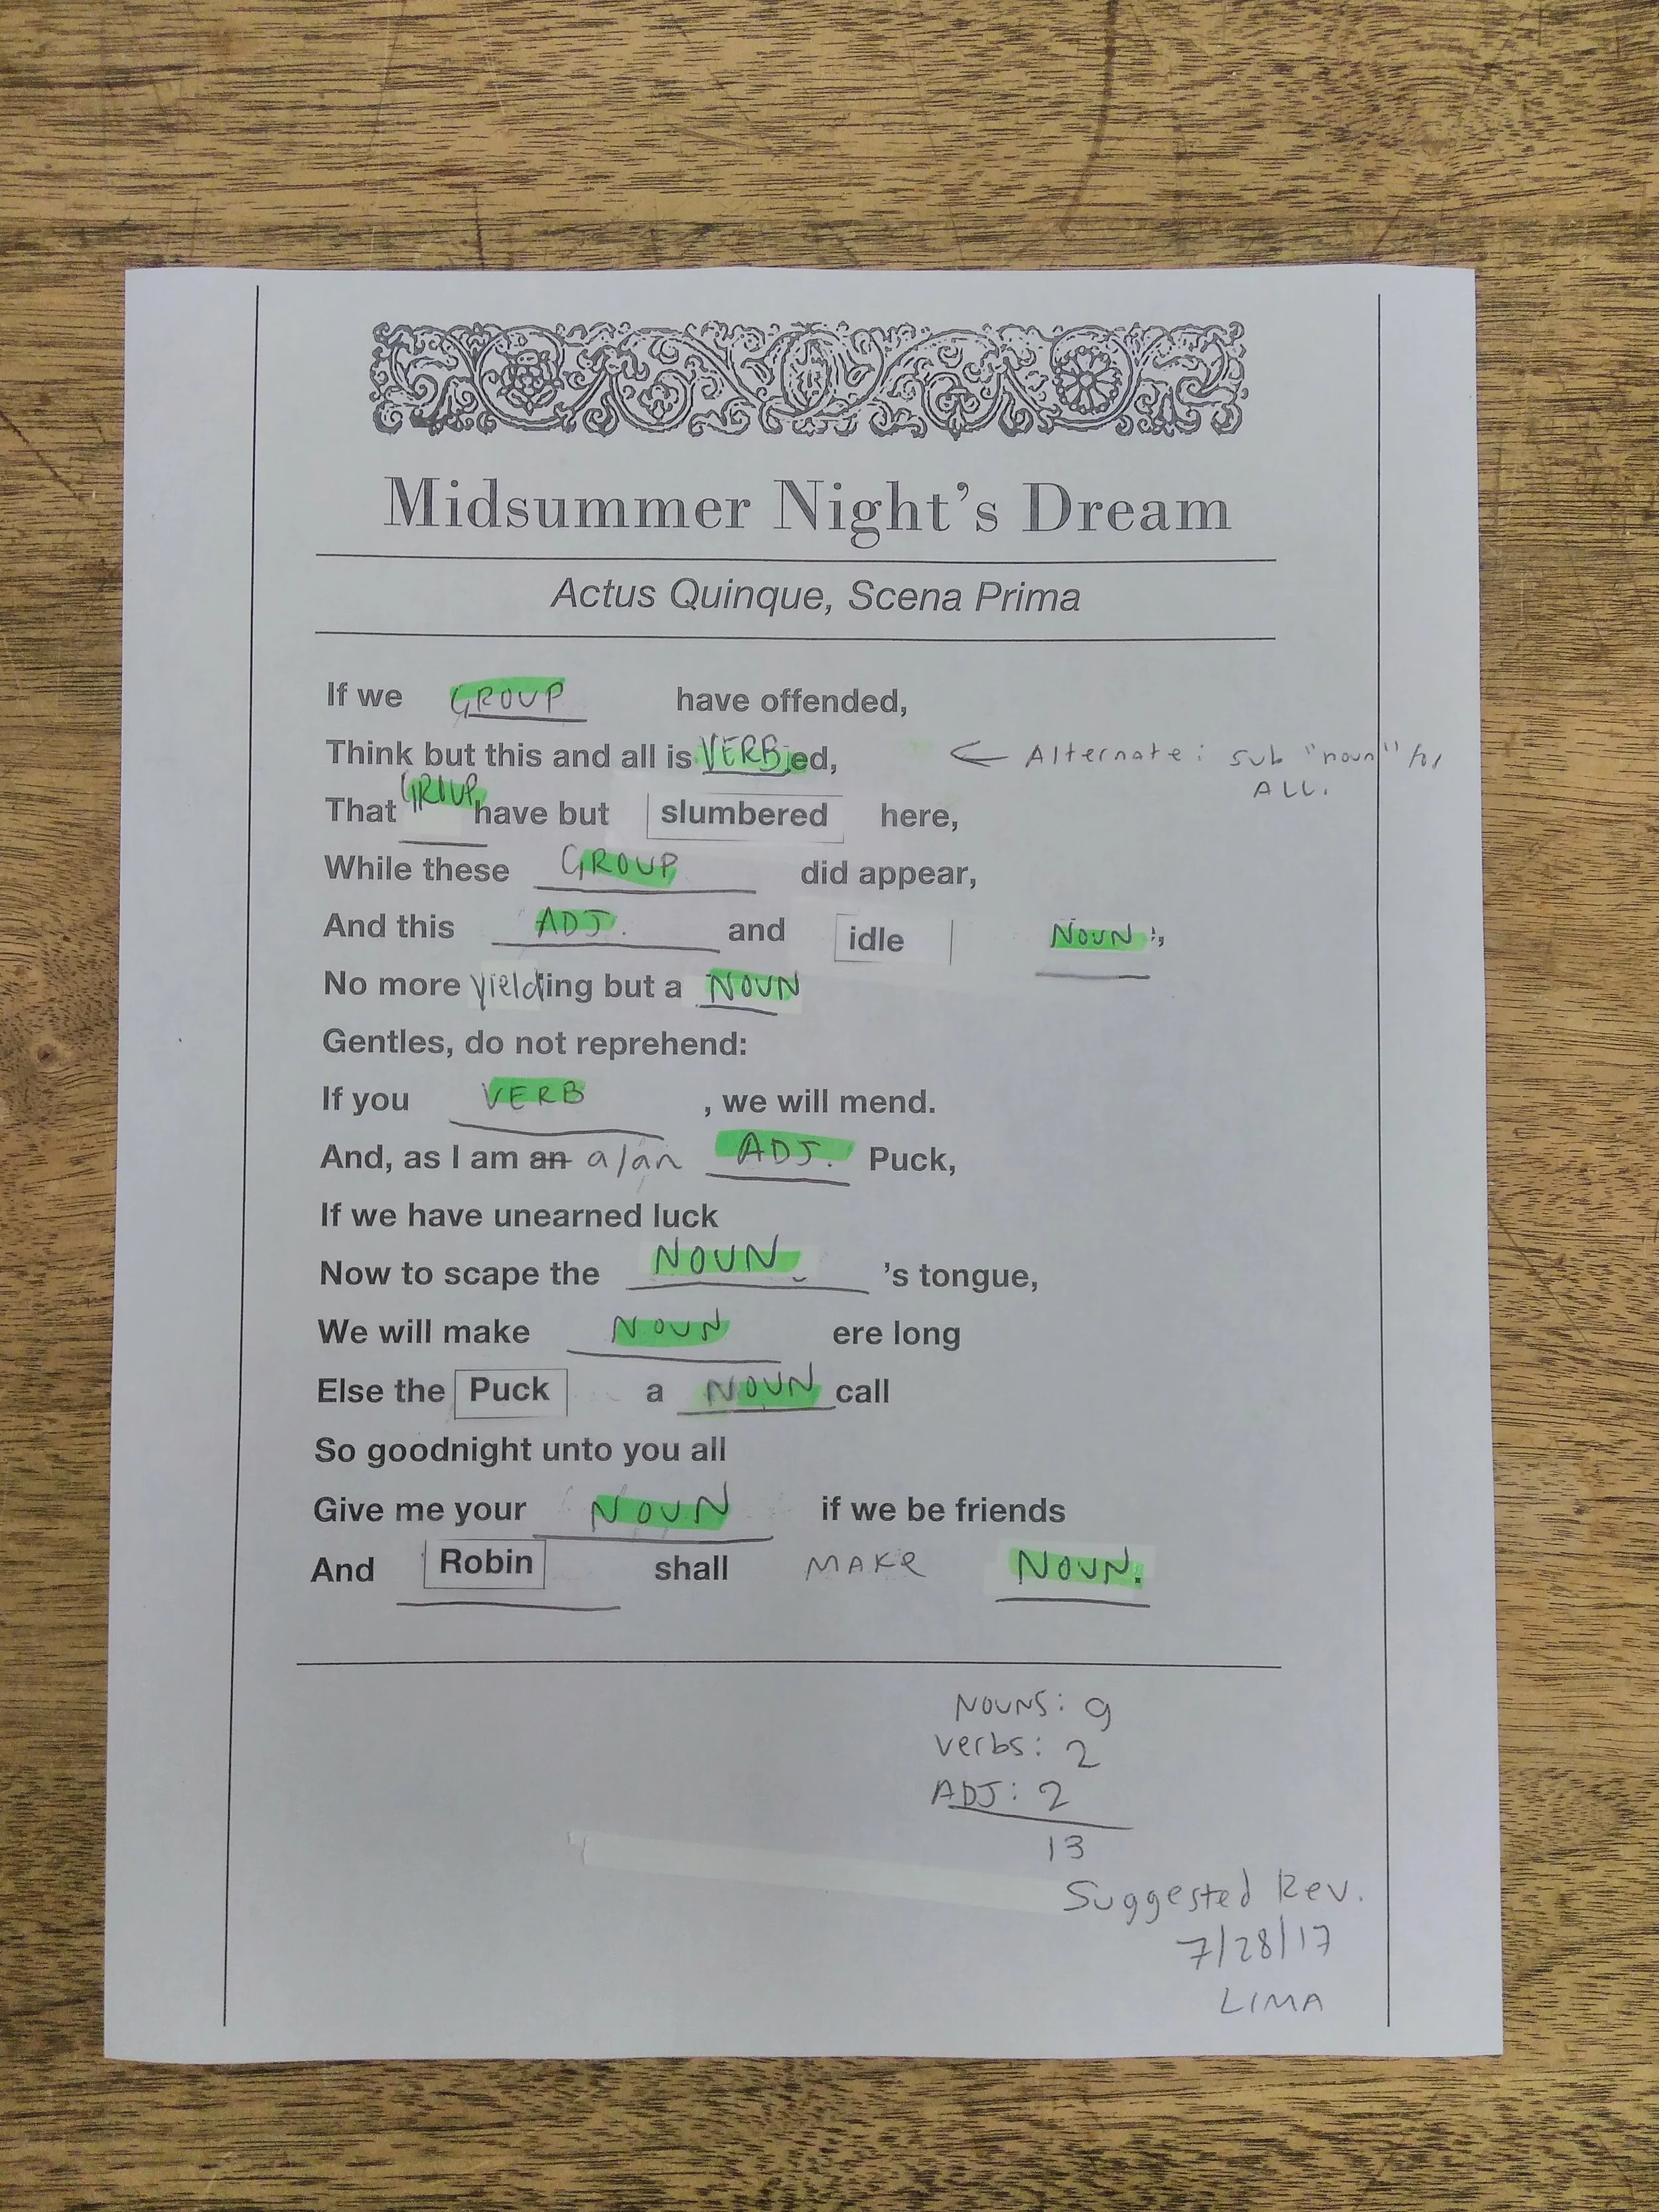 Midsummer Night's Dream
Actus Quinque, Scena Prima
If we GROUP have offended,
Think but this and all is VERBed, ← Alternate: sub "noun" for
ALL.
That GROUP have but slumbered here,
While these GROUP did appear,
And this ADJ. and idle NOUN,
No more yielding but a NOUN
Gentles, do not reprehend:
If you VERB, we will mend.
And, as I am an a/an ADJ. Puck,
If we have unearned luck
Now to scape the NOUN's tongue,
We will make NOUN ere long
Else the Puck a NOUN call
So goodnight unto you all
Give me your NOUN if we be friends
And Robin shall MAKE NOUN.
NOUNS: 9
verbs: 2
ADJ: 2
13
Suggested Rev.
7/28/17
LIMA